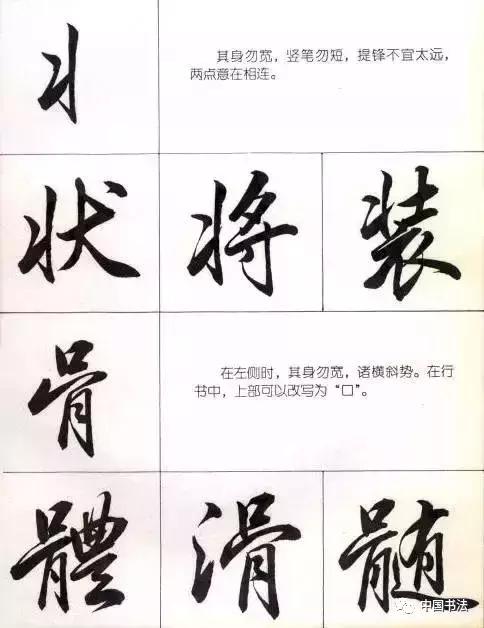 丬
其身勿宽，竖笔勿短，提锋不宜太远，
两点意在相连。
状 将 装
骨
在左侧时，其身勿宽，诸横斜势。在行
书中，上部可以改写为“口”。
體 滑 髓
中国书法